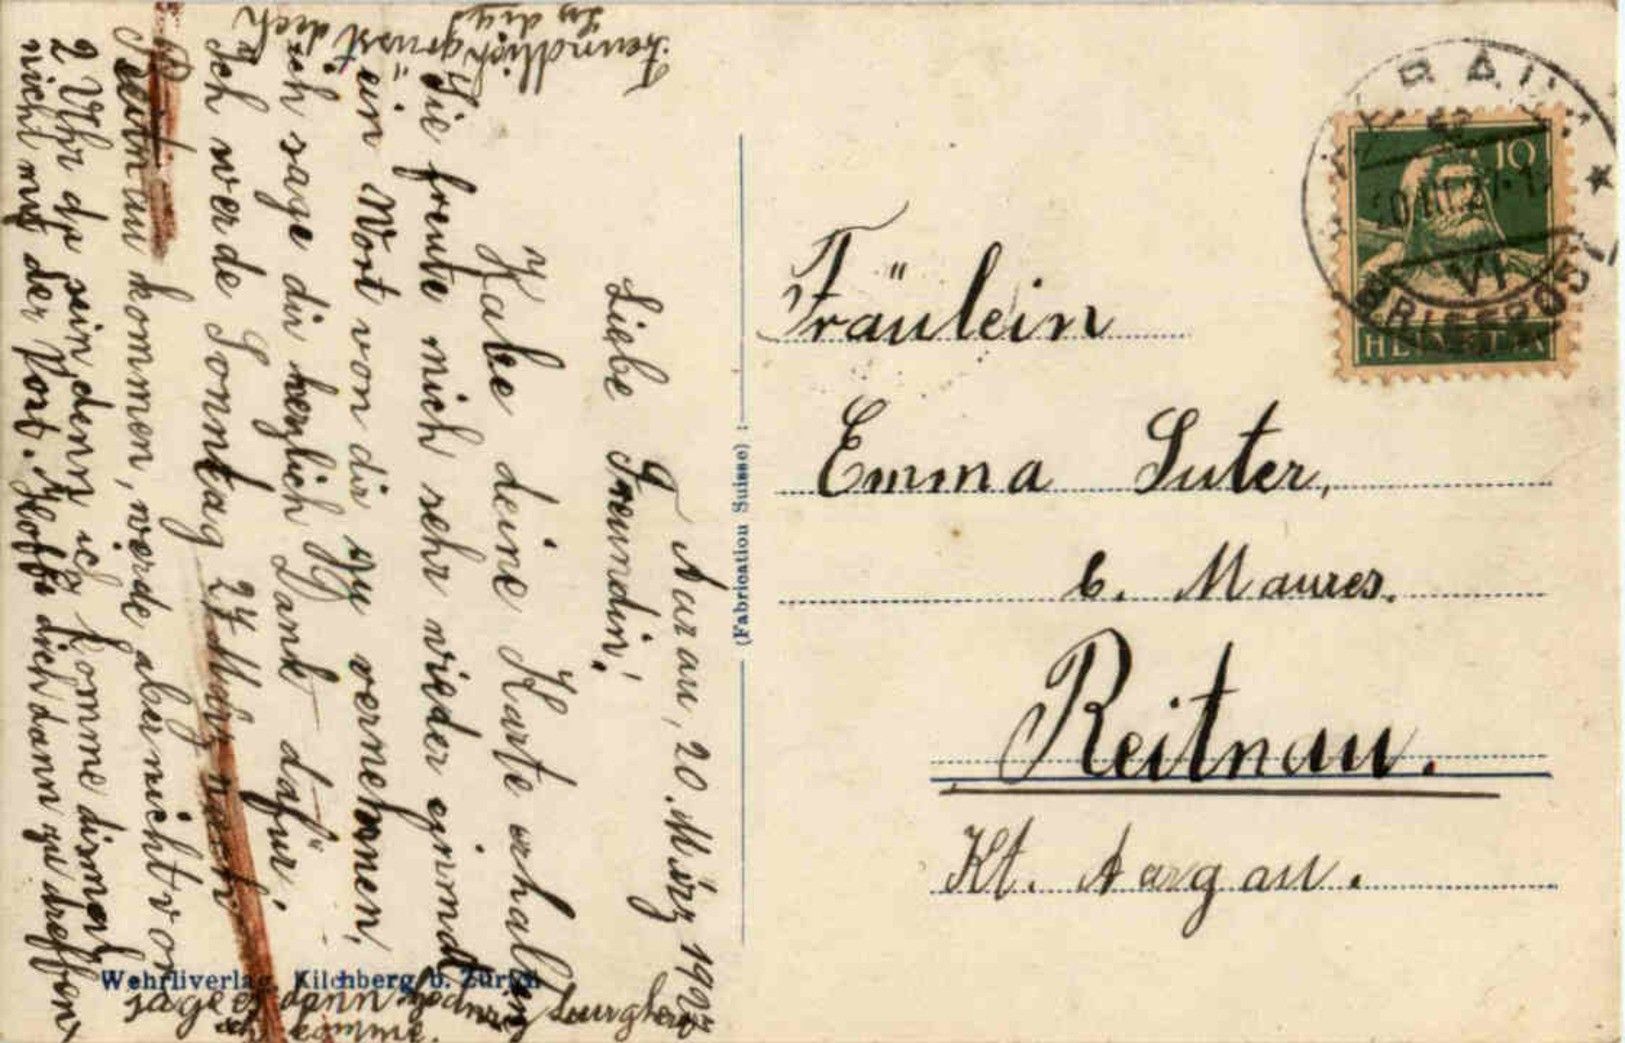 Aarau, 20. März 1927
Liebe Freundin!
Habe deine Karte erhalten
Sie freute mich sehr wieder
ein Wort von dir zu vernehmen,
ich sage dir herzlich Dank dafür.
Ich werde Sonntag 27 März nach
Reitnau kommen, werde aber nicht vor
2 Uhr da sein denn ich komme dismal
nicht mit der Post. Hoffe dich dann zu treffen
sage es dann
ich komme.
Freundlich grüsst dich
(Fabrication Suisse)
Wehrliverlag, Kilchberg b. Zürich
Fräulein
Emma Suter,
b. Maurers.
Reitnau.
Kt. Aargau.
10
HELVETIA
AARAU
20.III.27
VI
BRIEFPOST